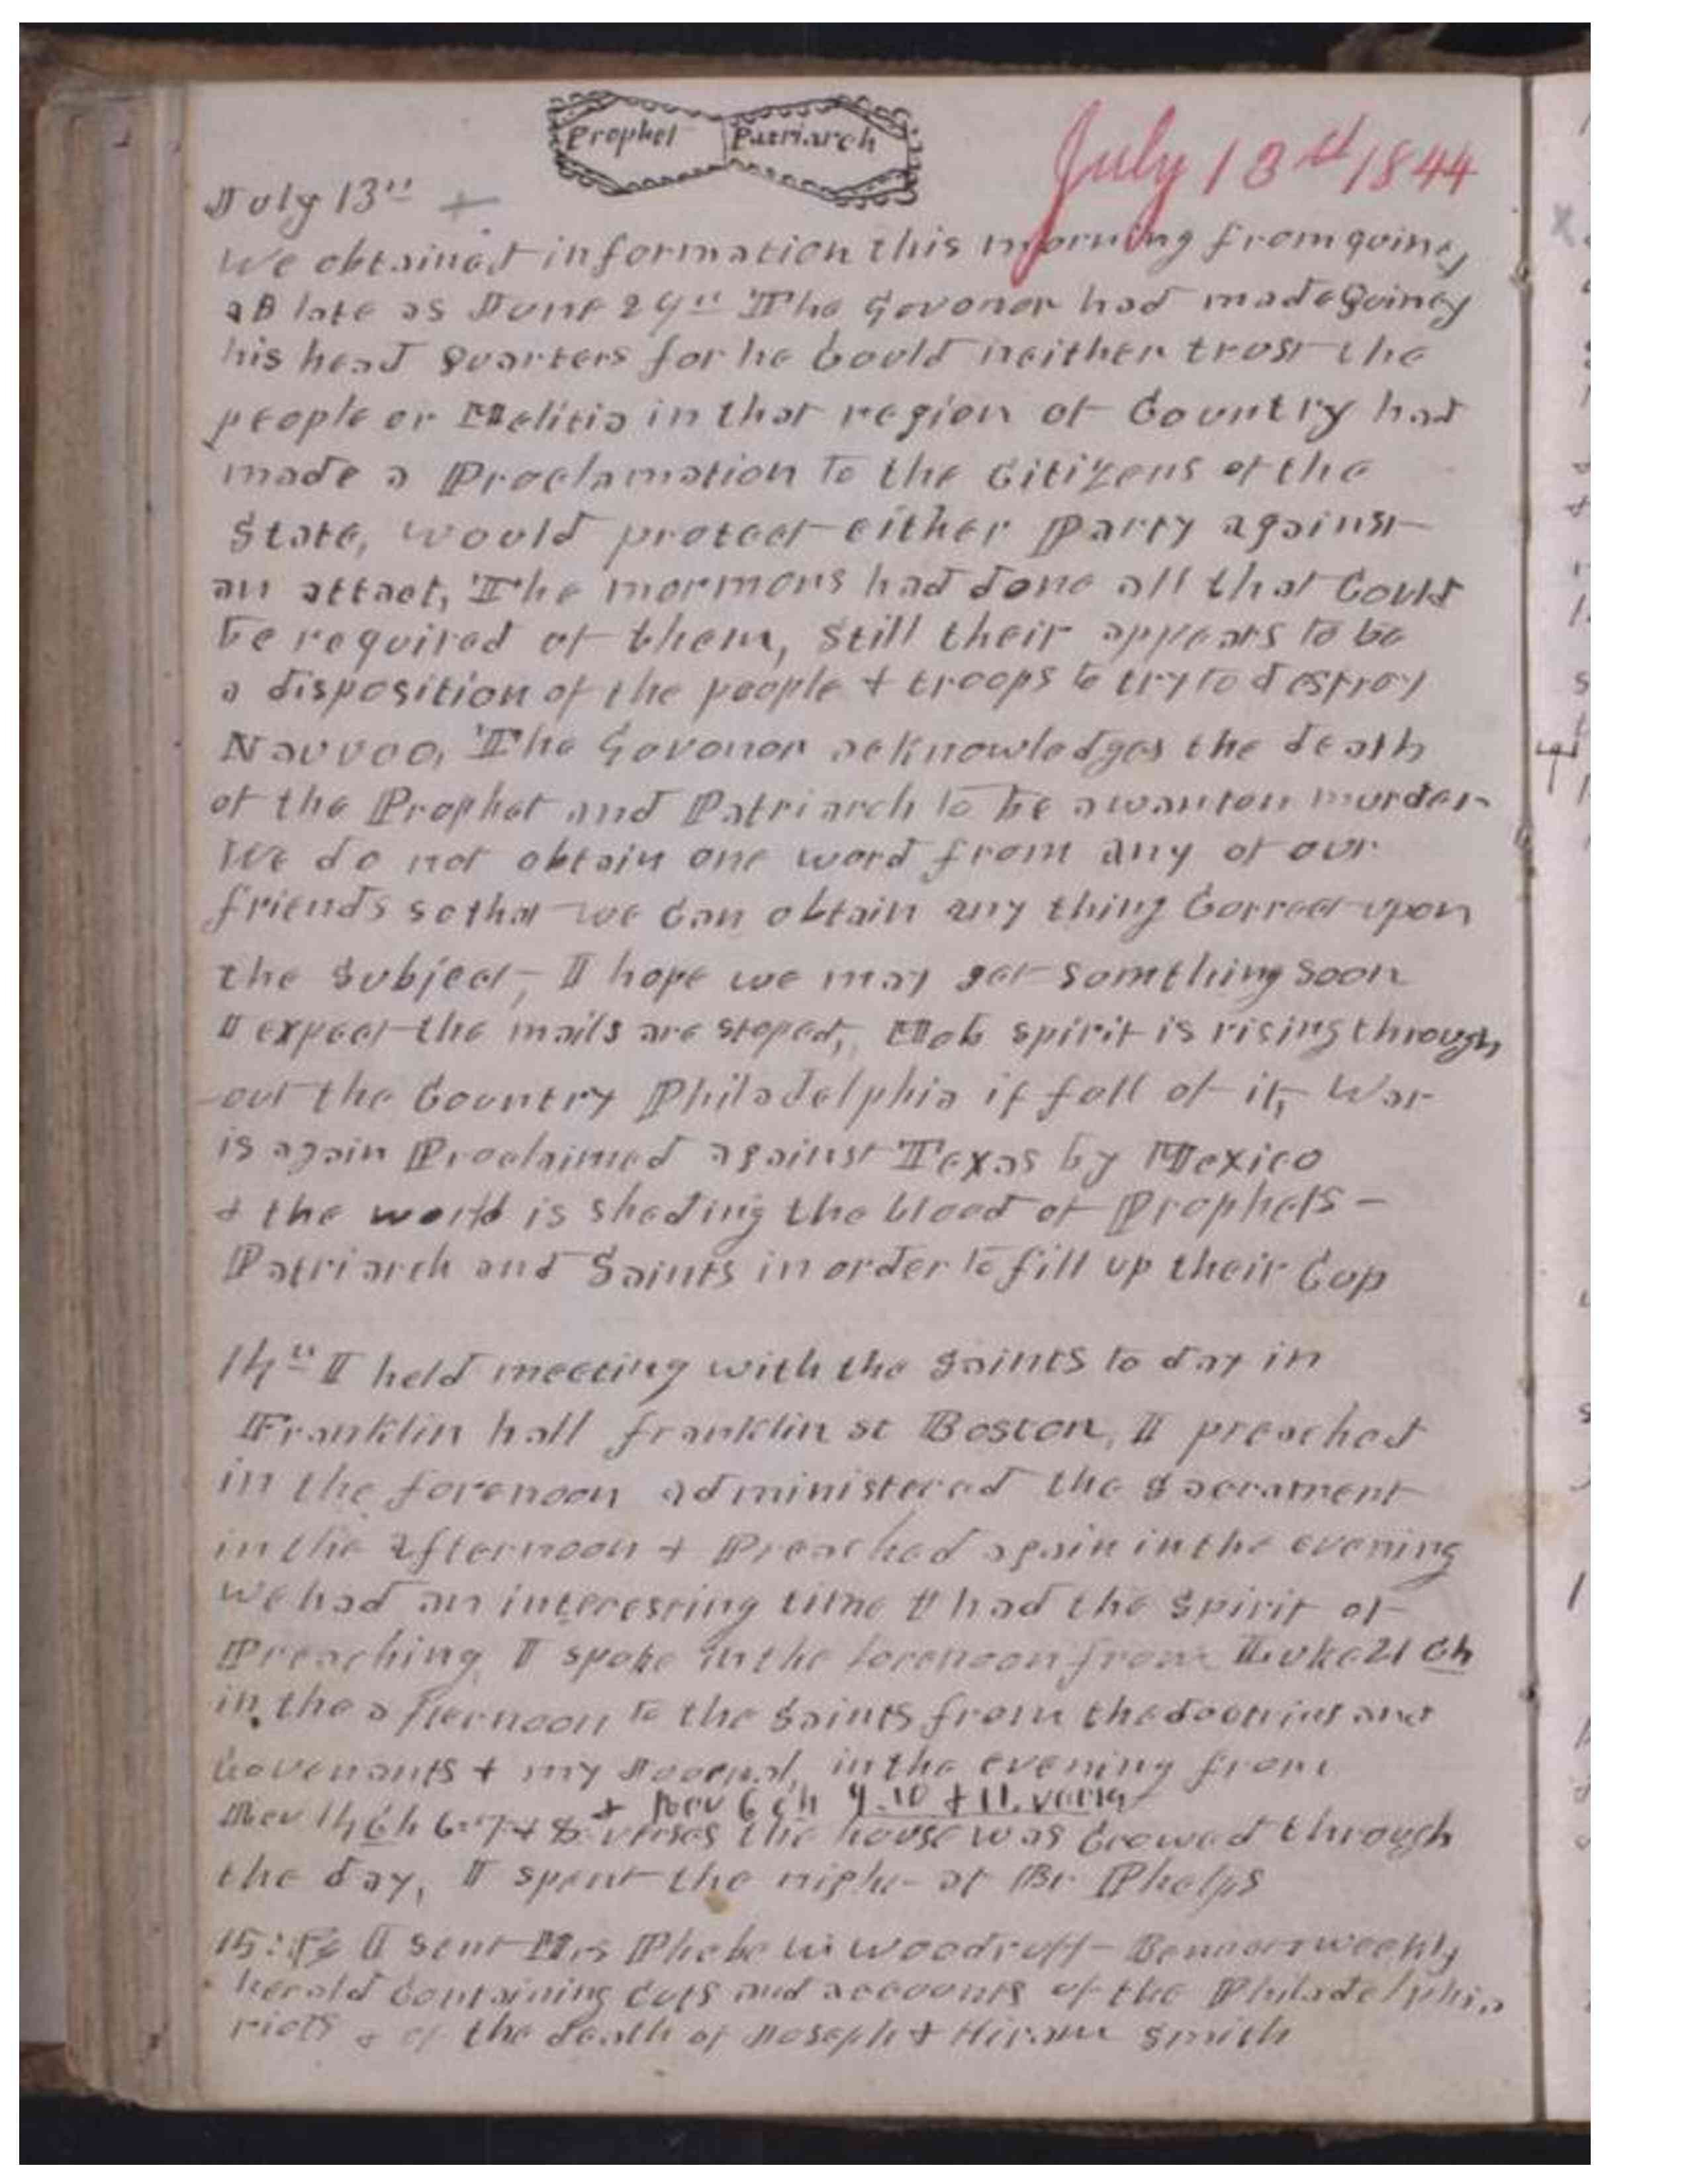 Prophet Patriarch
July 13th 1844
July 13th +
We obtained information this morning from quincy
as late as June 29th The Govonor had made Quincy
his head quarters for he Could neither trust the
people or Melitia in that region of Country had
made a Proclamation to the Citizens of the
State, would protect either Party against
an attact, The mormons had done all that Could
be required of them, Still their appears to be
a disposition of the people + troops to try to destroy
Nauvoo, The Govonor acknowledges the death
of the Prophet and Patriarch to be a wanton murder
We do not obtain one word from any of our
friends so that we Can obtain any thing Correct upon
the Subject, I hope we may get somthing soon
I expect the mails are stoped, Mob spirit is rising through
out the Country Philadelphia if full of it, War
is again Proclaimed against Texas by Mexico
+ the world is sheding the blood of Prophets –
Patriarch and Saints in order to fill up their Cup
14th I held meeting with the Saints to day in
Franklin hall franklin st Boston, I preached
in the forenoon administered the Sacrament
in the afternoon + Preached again in the evening
we had an interesting time I had the Spirit of
Preaching I spoke in the forenoon from Luke 21 Ch
in the afternoon to the Saints from the doctrins and
Covenants + my Journal, in the evening from
+ Rev 6 ch 9.10 + 11. verse
Rev 14 Ch 6-7+8 verses the house was Crowed through
the day, I spent the night at Br Phelps
15th I sent Mrs Phebe W Woodruff – Bennets weekly
herald Containing Cuts and accounts of the Philadelphia
riots + of the death of Joseph + Hiram Smith